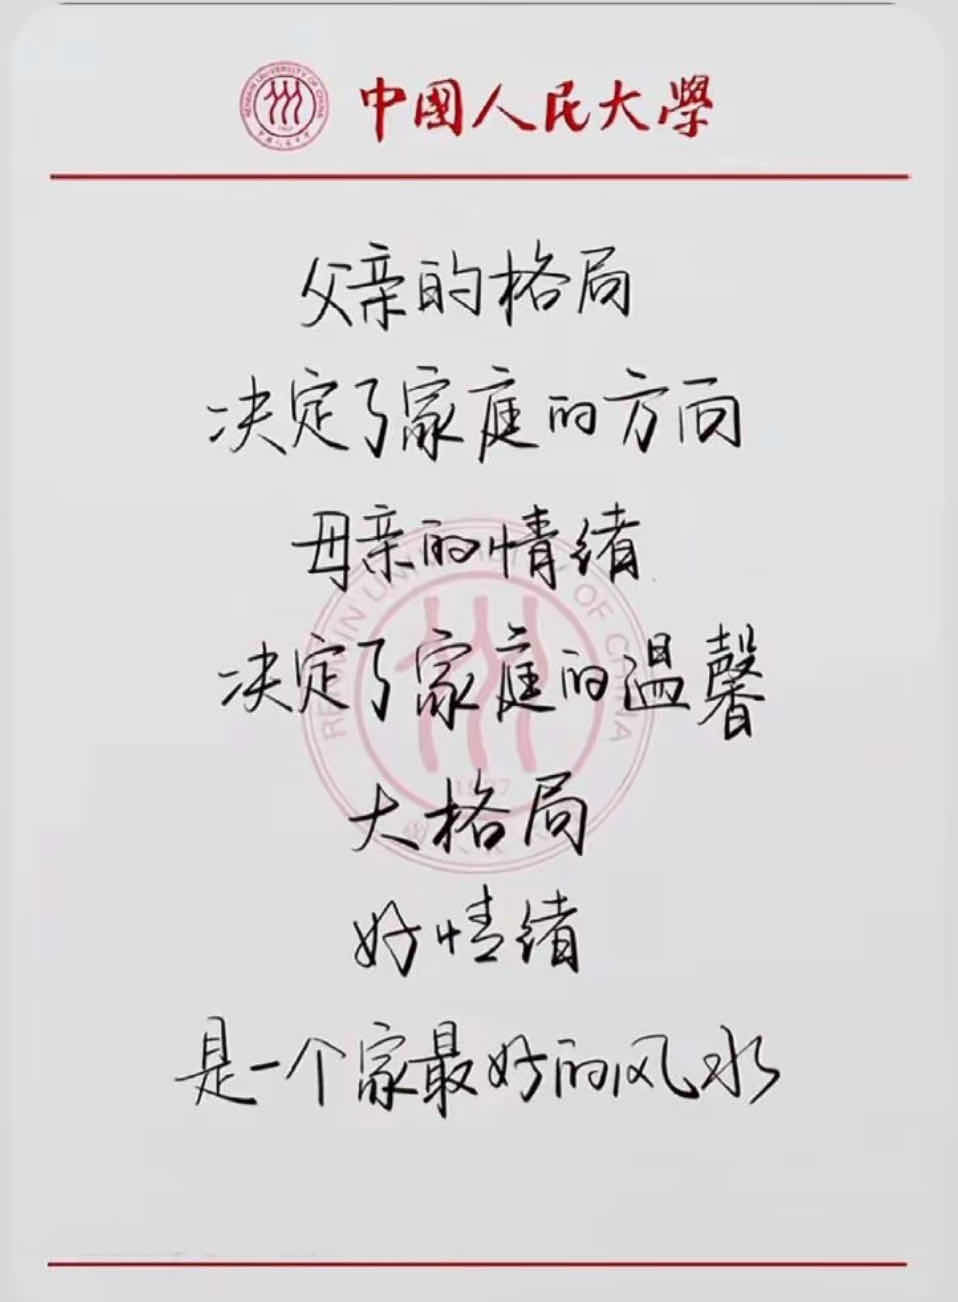 RENMIN UNIVERSITY OF CHINA
1937
中國人民大學
父亲的格局
决定了家庭的方向
母亲的情绪
决定了家庭的温馨
大格局
好情绪
是一个家最好的风水
RENMIN UNIVERSITY OF CHINA
1937